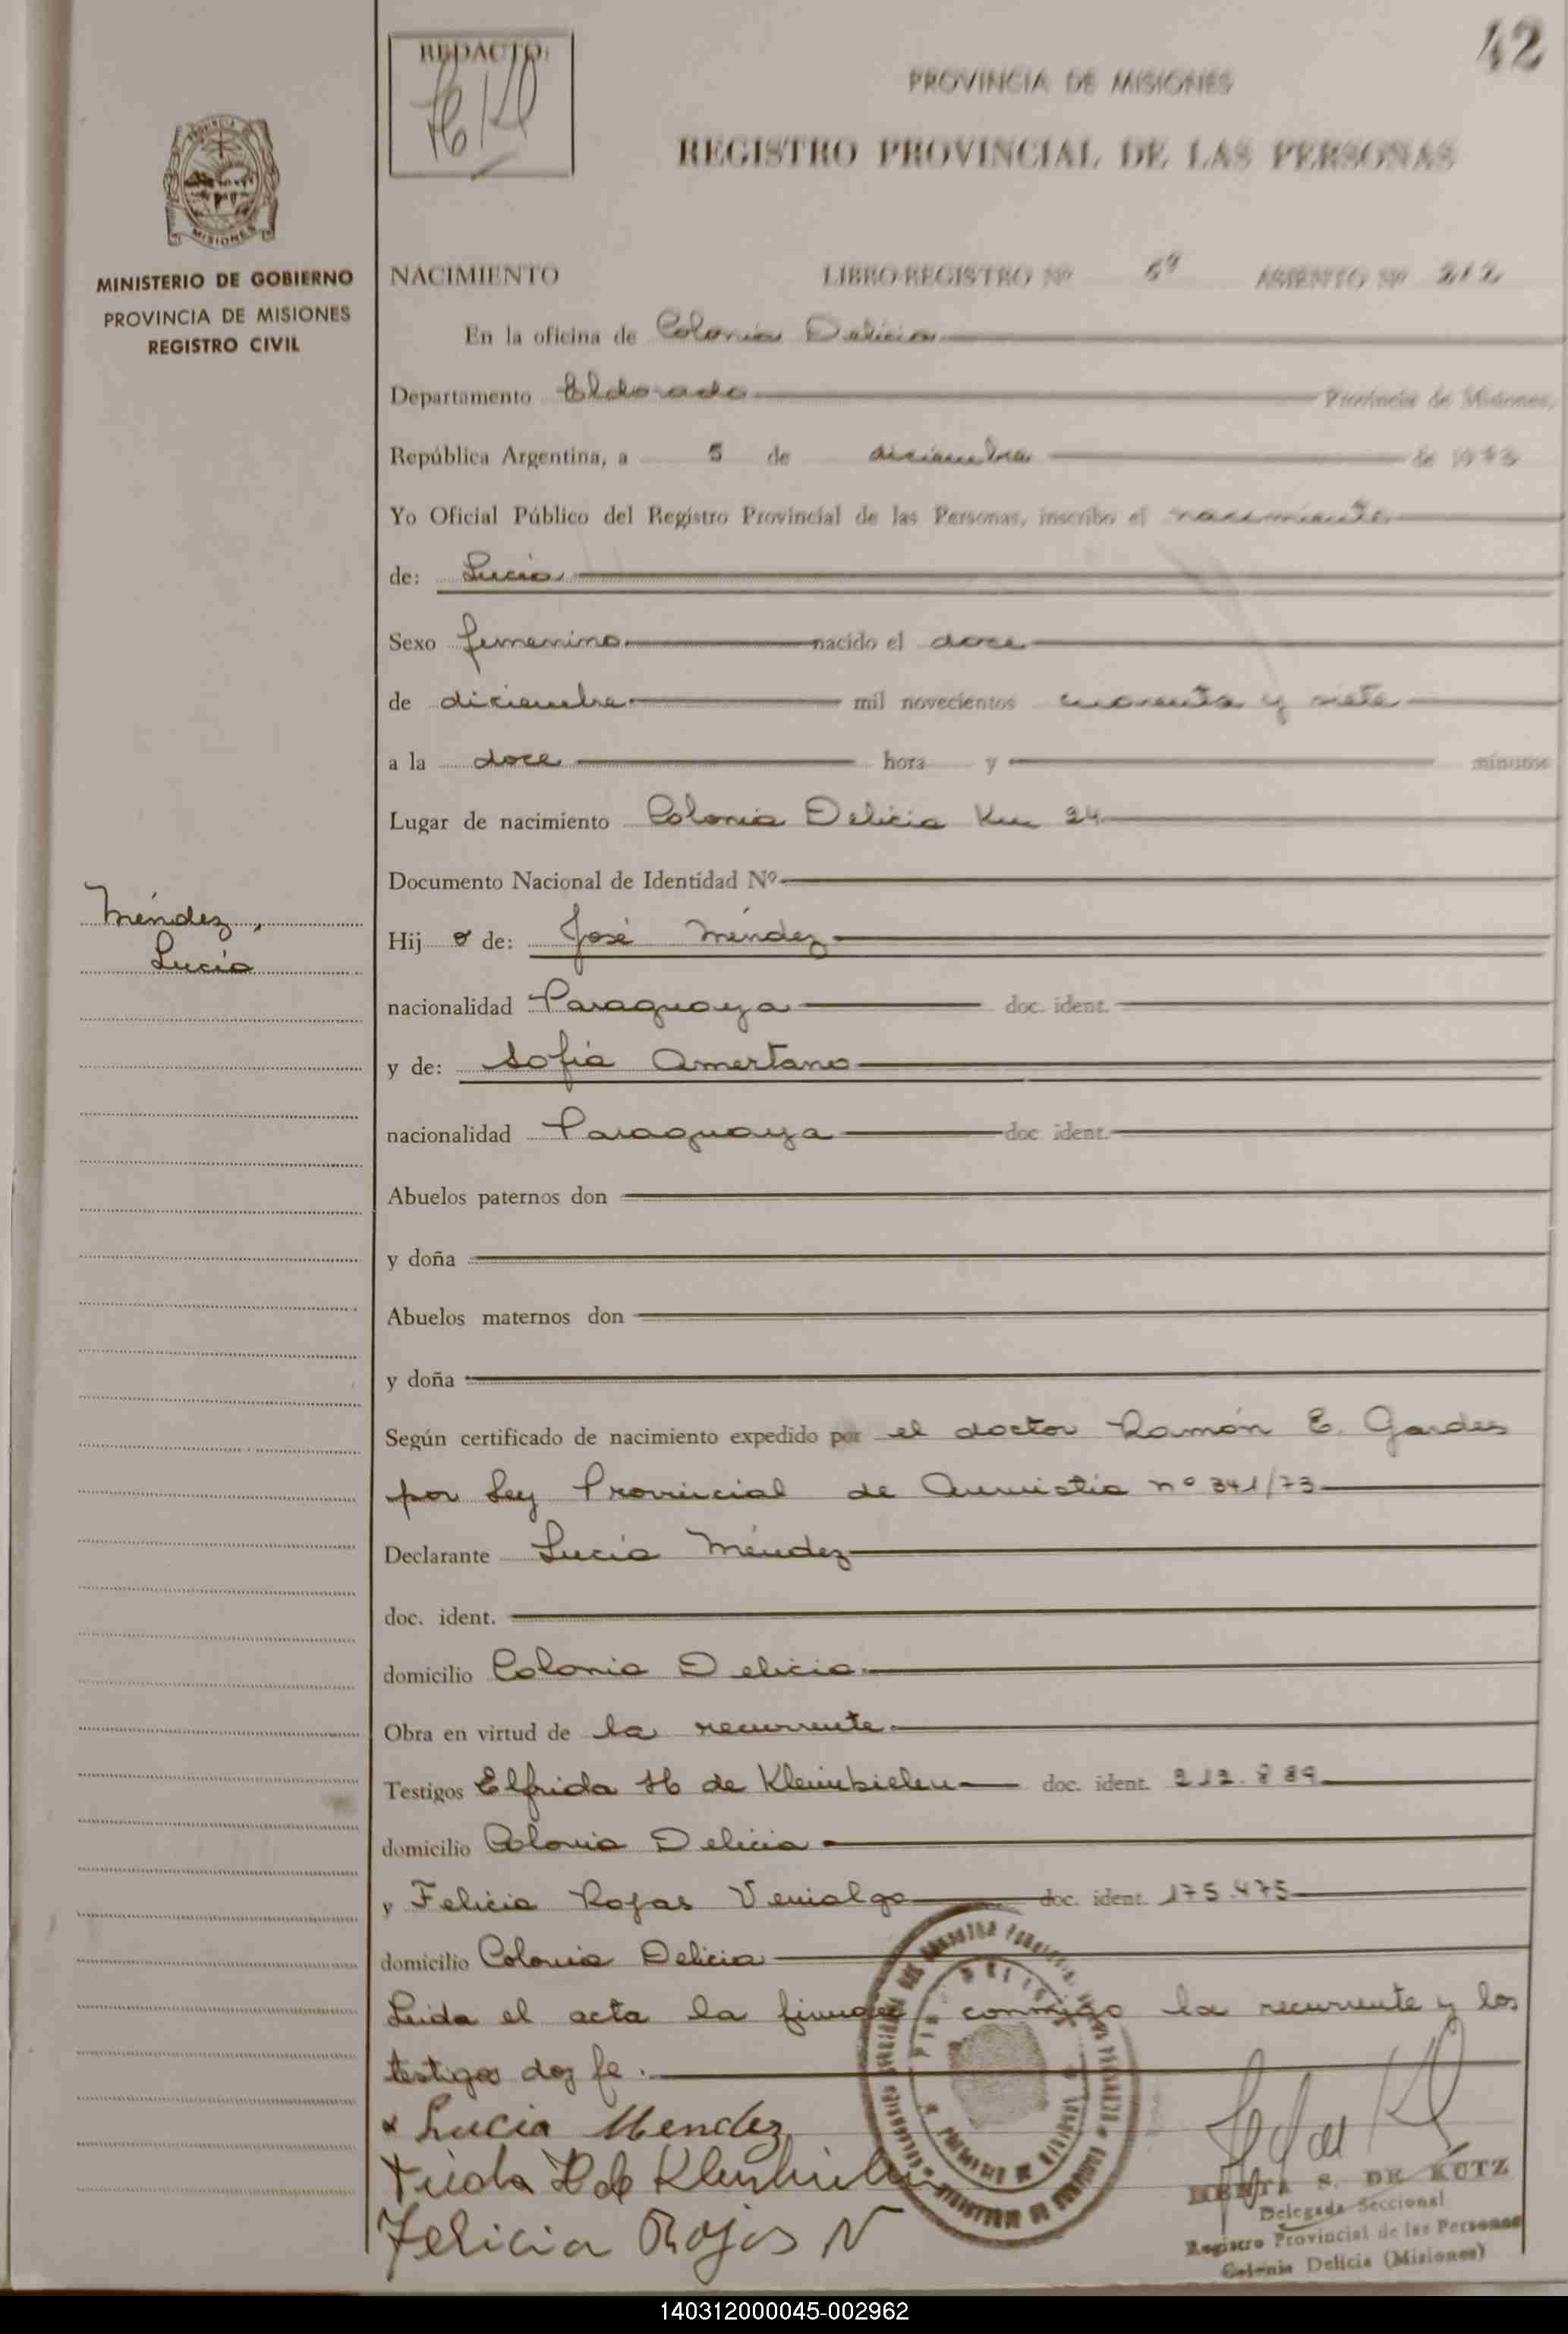 42
REDACTO:
PROVINCIA DE MISIONES
REGISTRO PROVINCIAL DE LAS PERSONAS
MISIONES
MINISTERIO DE GOBIERNO
PROVINCIA DE MISIONES
REGISTRO CIVIL
NACIMIENTO LIBRO-REGISTRO Nº 5º ASIENTO Nº 212
En la oficina de Colonia Delicia
Departamento Eldorado Provincia de Misiones,
República Argentina, a 5 de diciembre de 1973
Yo Oficial Público del Registro Provincial de las Personas, inscribo el nacimiento
de: Lucia
Sexo femenino nacido el doce
de diciembre mil novecientos cuarenta y siete
a la doce hora y minutos
Lugar de nacimiento Colonia Delicia Km 24
Documento Nacional de Identidad Nº
Méndez,
Lucía
Hij a de: José Méndez
nacionalidad Paraguaya doc. ident.
y de: Sofia Amertano
nacionalidad Paraguaya doc ident.
Abuelos paternos don
y doña
Abuelos maternos don
y doña
Según certificado de nacimiento expedido por el doctor Ramón E. Gardes
por Ley Provincial de Amnistia nº 341/73
Declarante Lucía Méndez
doc. ident.
domicilio Colonia Delicia
Obra en virtud de la recurrente
Testigos Elfrida H de Kleinbielen doc. ident. 212.889
domicilio Colonia Delicia
y Felicia Rojas Venialgo doc. ident. 175.475
domicilio Colonia Delicia
Leida el acta la firman conmigo la recurrente y los
testigos doy fe.
x Lucia Mendez
Felicia Rojas V
S. DE KUTZ
Delegada Seccional
Registro Provincial de las Personas
Colonia Delicia (Misiones)
140312000045-002962